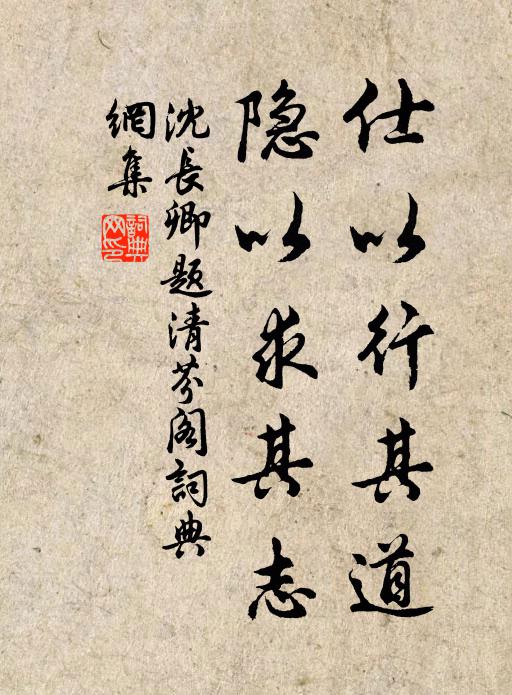 仕以行其道
隐以求其志
沈長卿题清芬阁詞典
網集
詞典
网印